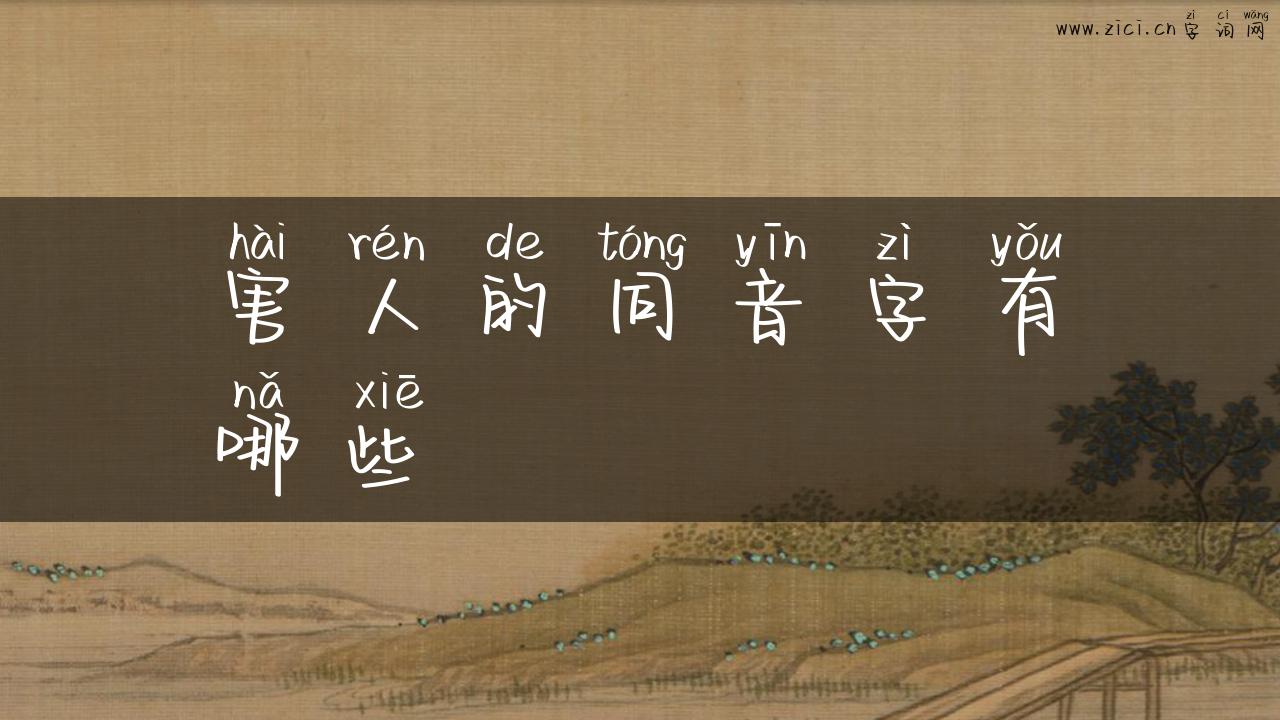 zì cí wǎng
www.zici.cn字词网
hài rén de tóng yīn zì yǒu
害人的同音字有
nǎ xiē
哪些